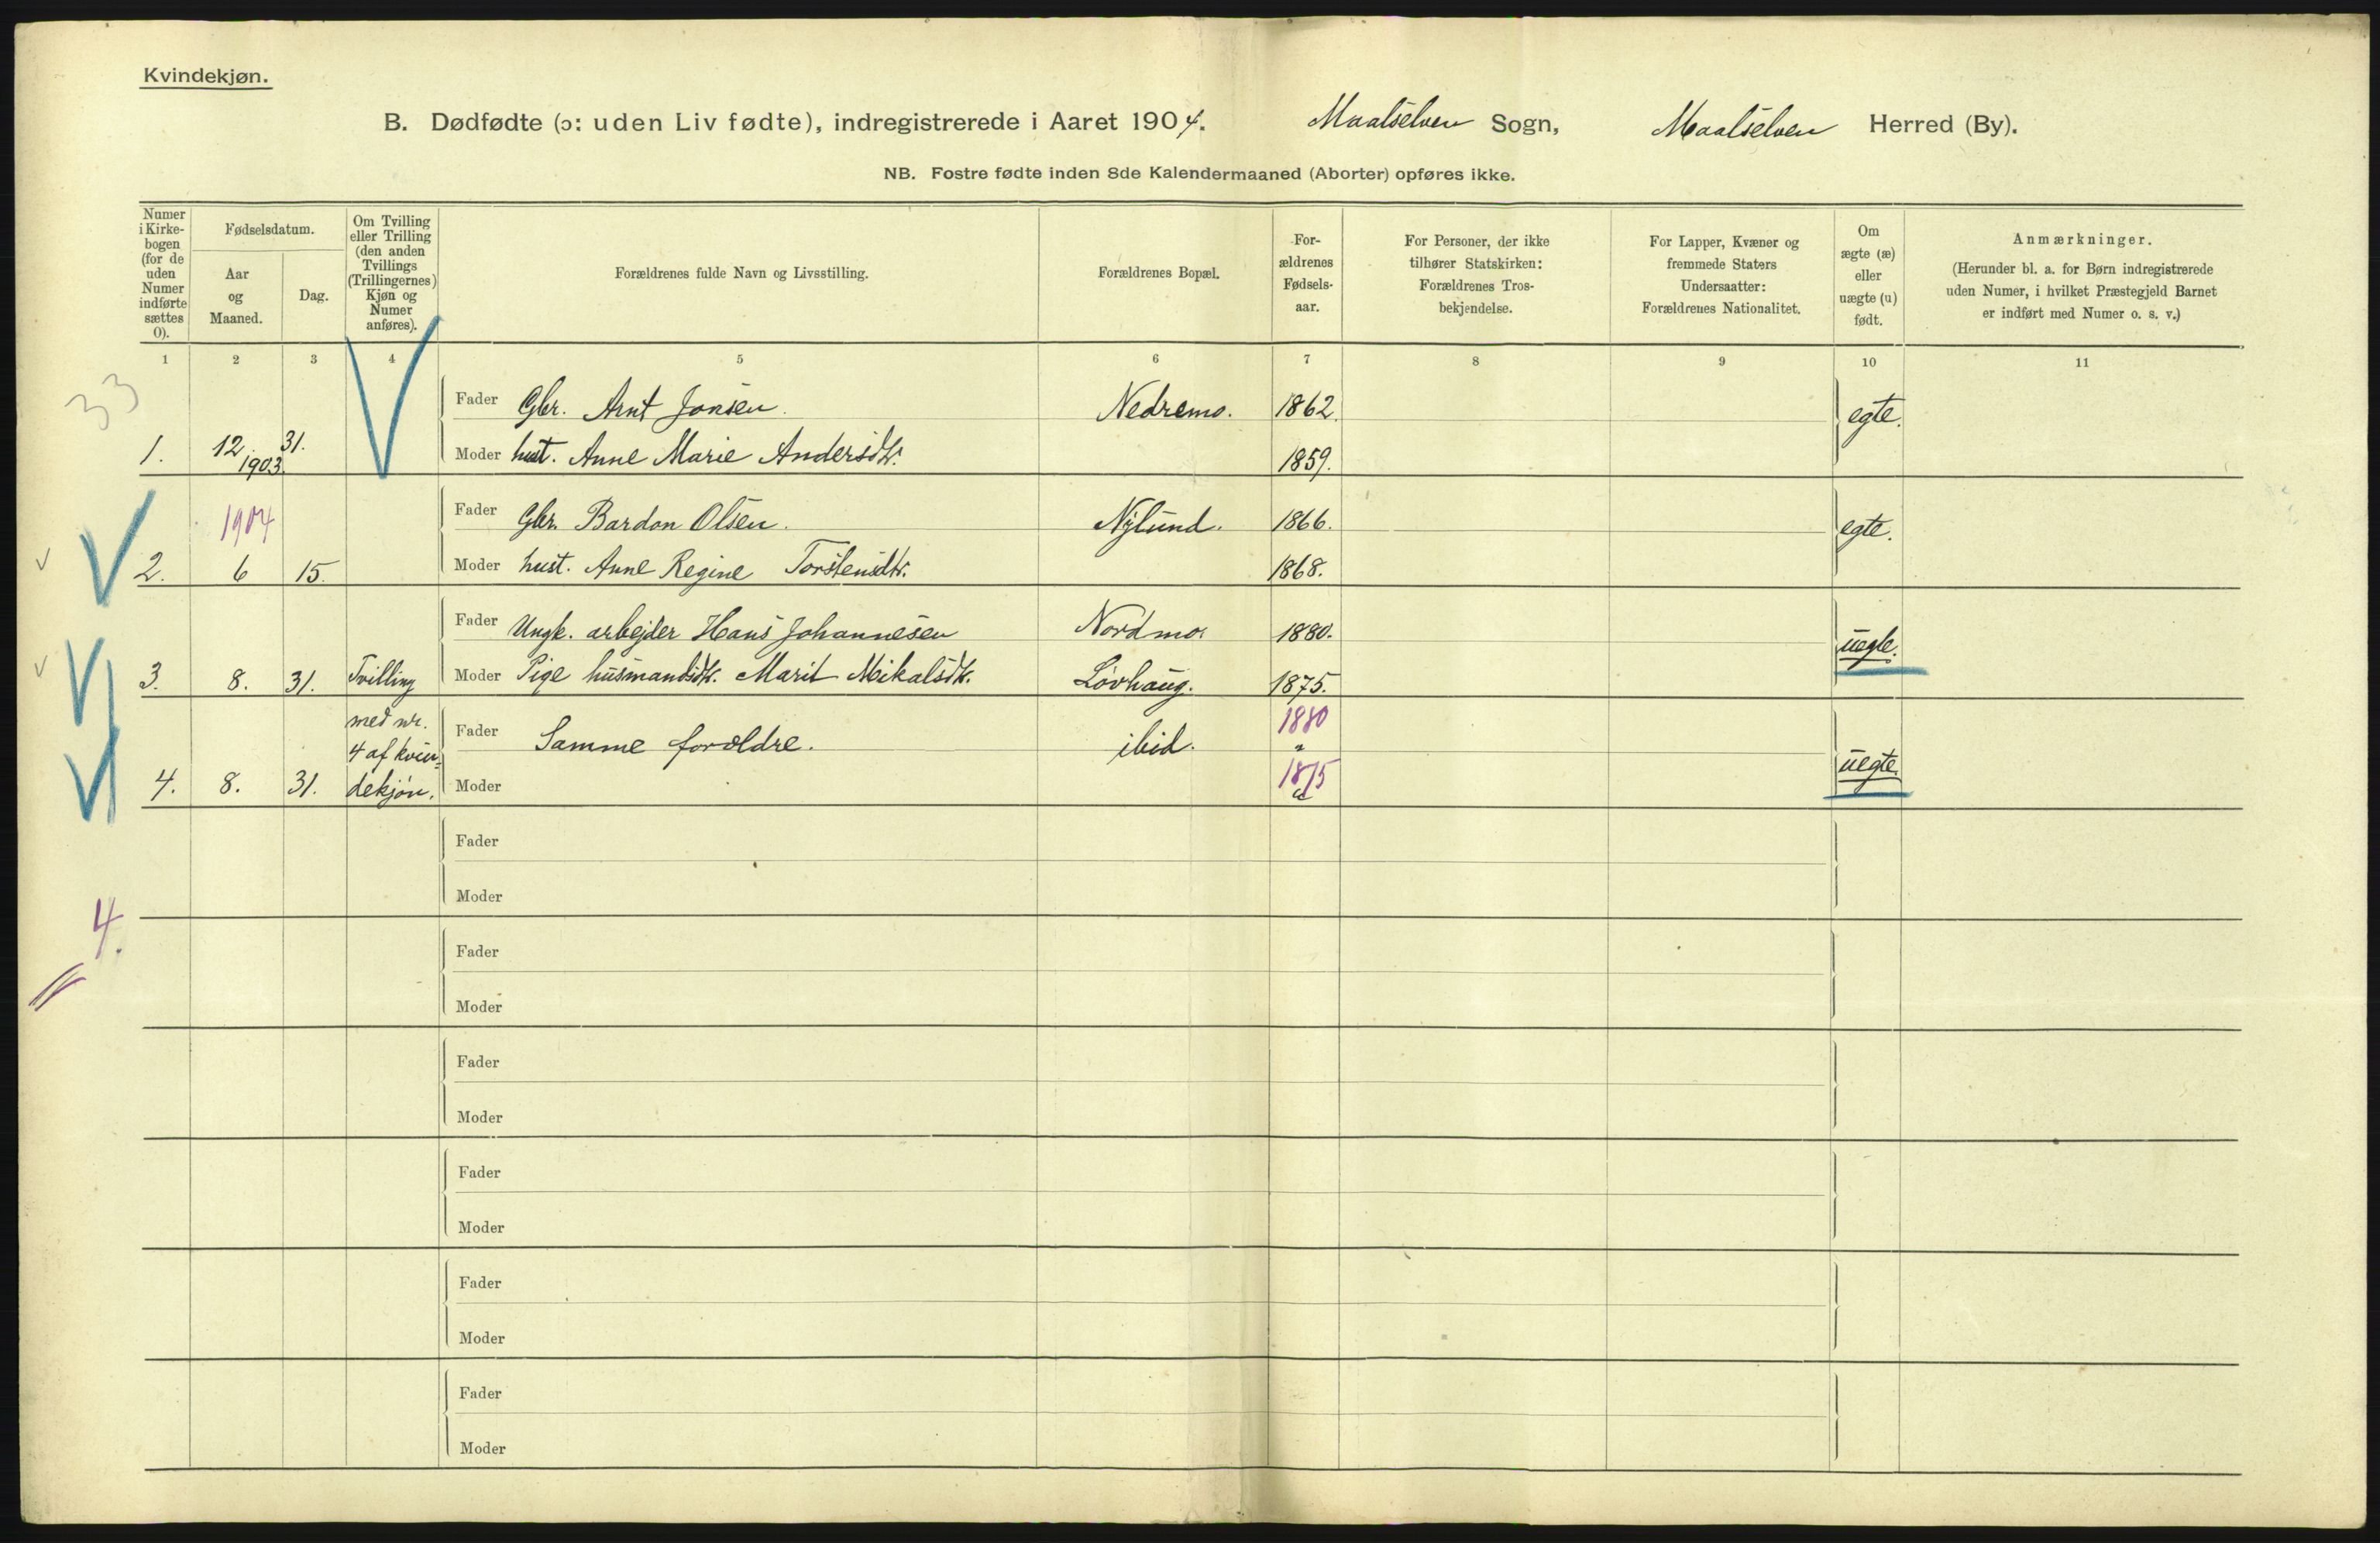 Kvindekjøn.
B. Dødfødte (ɔ: uden Liv fødte), indregistrerede i Aaret 1904. Maalselven Sogn, Maalselven Herred (By).
NB. Fostre fødte inden 8de Kalendermaaned (Aborter) opføres ikke.
Numer i Kirke-bogen (for de uden Numer indførte sættes 0).
Fødselsdatum.
Aar og Maaned.
Dag.
Om Tvilling eller Trilling (den anden Tvillings (Trillingernes) Kjøn og Numer anføres).
Forældrenes fulde Navn og Livsstilling.
Forældrenes Bopæl.
For-ældrenes Fødsels-aar.
For Personer, der ikke tilhører Statskirken: Forældrenes Tros-bekjendelse.
For Lapper, Kvæner og fremmede Staters Undersaatter: Forældrenes Nationalitet.
Om ægte (æ) eller uægte (u) født.
Anmærkninger.
(Herunder bl. a. for Børn indregistrerede uden Numer, i hvilket Præstegjeld Barnet er indført med Numer o. s. v.)
1 2 3 4 5 6 7 8 9 10 11
33
Fader Gbr. Arnt Jonsen. Nedremo. 1862. egte.
1. 12 1903. 31. Moder hust. Anne Marie Andersdtr. 1859.
1904 Fader Gbr. Bardon Olsen. Nylund. 1866. egte.
2. 6 15. Moder hust. Anne Regine Torstensdtr. 1868.
Fader Ungk. arbejder Hans Johannesen Nordmo. 1880. uegte.
3. 8. 31. Tvilling Moder Pige husmandsdtr. Marit Mikalsdtr. Løvhaug. 1875.
med nr. 4 af kvin= Fader Samme forældre. ibid. 1880 " uegte.
4. 8. 31. dekjøn. Moder 1875
Fader
Moder
4.
Fader
Moder
Fader
Moder
Fader
Moder
Fader
Moder
Fader
Moder